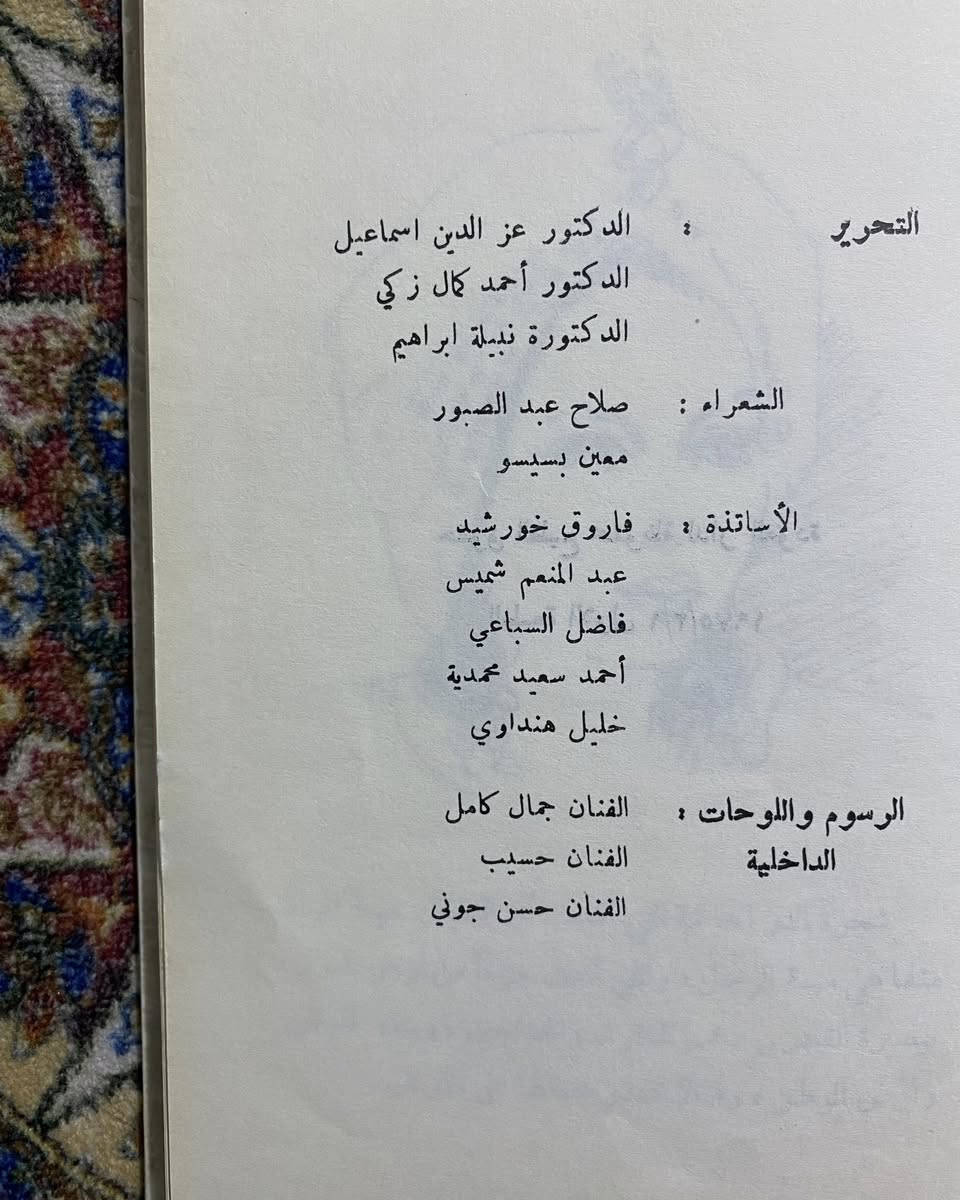 التحرير : الدكتور عز الدين اسماعيل
الدكتور أحمد كمال زكي
الدكتورة نبيلة ابراهيم
الشعراء : صلاح عبد الصبور
معين بسيسو
الأساتذة : فاروق خورشيد
عبد المنعم شميس
فاضل السباعي
أحمد سعيد محمدية
خليل هنداوي
الرسوم واللوحات : الفنان جمال كامل
الداخلية الفنان حسيب
الفنان حسن جوني